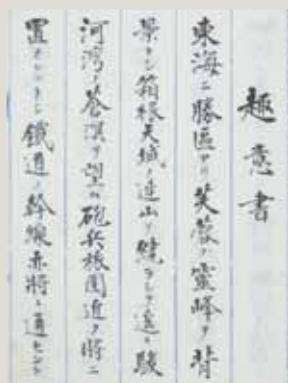 趣意書
東海ニ勝區アリ芙蓉ノ靈峰ヲ背
景トシ箱根天城ノ連山ヲ繞ラシテ遥ニ駿
河湾ノ蒼溟ヲ望ム砲兵旅團近ク將ニ
置カレントシ鐵道ノ幹線亦將ニ通セント